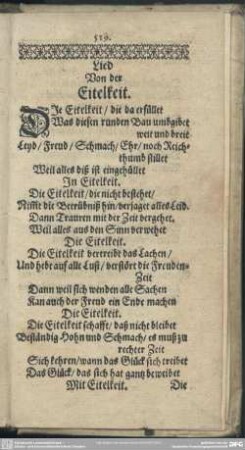 519.
Lied
Von der
Eitelkeit.
DIe Eitelkeit / die da erfüllet
Was diesen runden Bau umbgibet
weit und breit
Leyd / Freud / Schmach / Ehr / noch Reich-
thumb stillet
Weil alles diß ist eingehüllet
In Eitelkeit.
Die Eitelkeit / die nicht bestehet /
Nimt die Betrübniß hin / verjaget alles Leid.
Dann Trauren mit der Zeit vergehet,
Weil alles aus den Sinn verwehet
Die Eitelkeit.
Die Eitelkeit vertreibt das Lachen /
Und hebt auff alle Lust / verstört die Freuden-
Zeit
Dann weil sich wenden alle Sachen
Kan auch der Freud ein Ende machen
Die Eitelkeit.
Die Eitelkeit schafft / daß nicht bleibet
Beständig Hohn und Schmach / es muß zu
rechter Zeit
Sich kehren / wann das Glück sich treibet
Das Glück / das sich hat gantz beweibet
Mit Eitelkeit.
Die